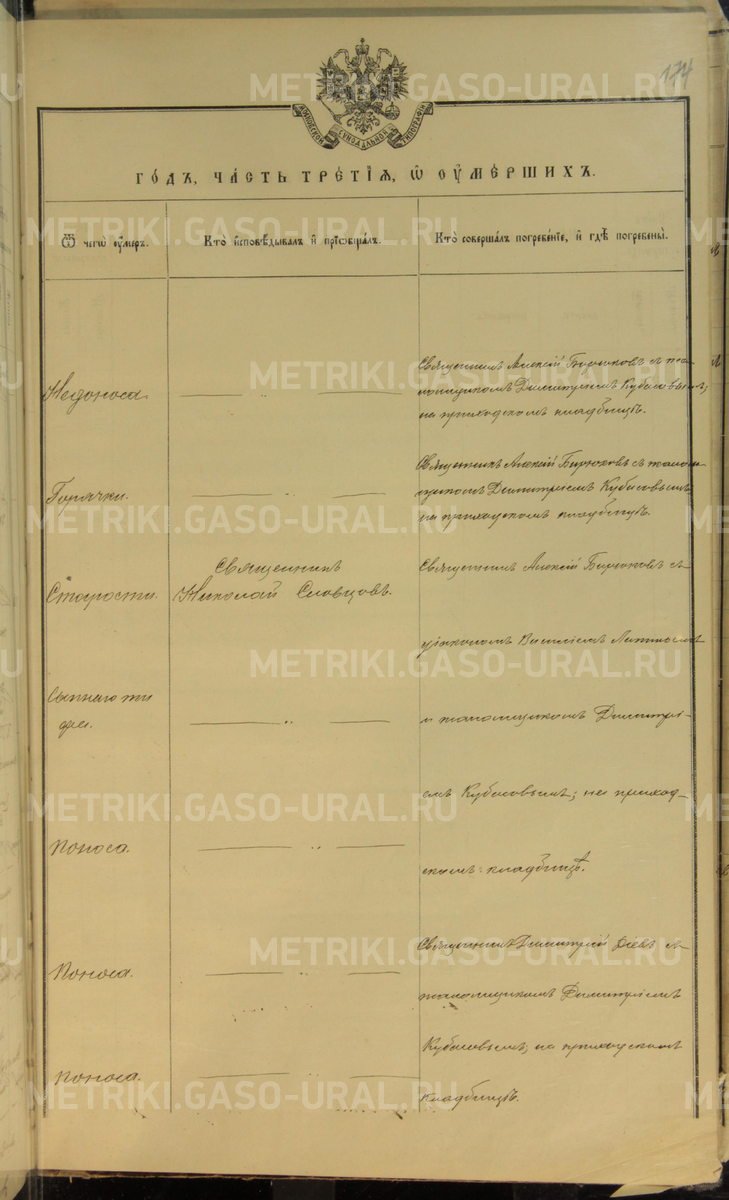 174
МОСКОВСКОЙ СѴНОДАЛЬНОЙ ТИПОГРАФІИ
ГОДЪ, ЧАСТЬ ТРЕТІѦ, Ѡ ОУМЕРШИХЪ.
Ѿ чегѡ оумеръ.
Кто исповѣдывалъ и пріобщалъ.
Кто совершалъ погребеніе, и гдѣ погребены.
Недоноса.
Священникъ Алексій Бирюковъ съ псаломщикомъ Димитріемъ Кубасовымъ;
на приходскомъ кладбищѣ.
Горячки.
Священникъ Алексій Бирюковъ съ псалом-
щикомъ Димитріемъ Кубасовымъ
на приходскомъ кладбищѣ.
Старости.
Священникъ
Николай Словцовъ.
Священникъ Алексій Бирюковъ съ
діакономъ Василіемъ
и псаломщикомъ Димитрі-
емъ Кубасовымъ; на приход-
скомъ кладбищѣ.
Сыпнаго ти
фа.
Поноса.
Поноса.
Священникъ Димитрій Діевъ съ
псаломщикомъ Димитріемъ
Кубасовымъ; на приходскомъ
кладбищѣ.
Поноса.
METRIKI.GASO-URAL.RU